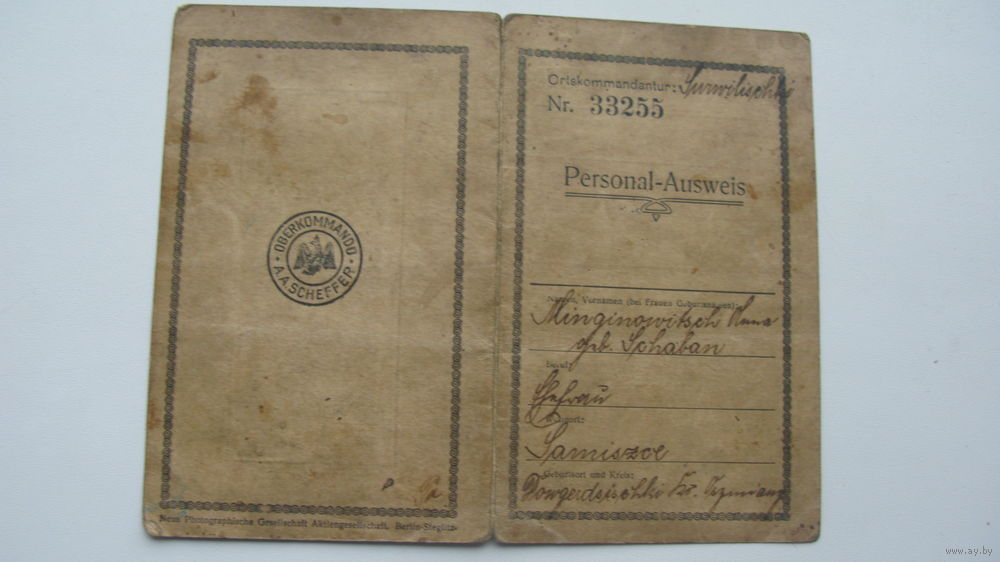 OBERKOMMANDO
A.A.SCHEFFER
Neue Photographische Gesellschaft Aktiengesellschaft, Berlin-Steglitz.
Ortskommandantur: Surwilischki
Nr. 33255
Personal-Ausweis
Namen, Vornamen (bei Frauen Geburtsnamen):
Minginowitsch Anna
geb. Schaban
Beruf:
Ehefrau
Wohnort:
Samiszoe
Geburtsort und Kreis:
Dowgerdsischki Kr.
www.ay.by